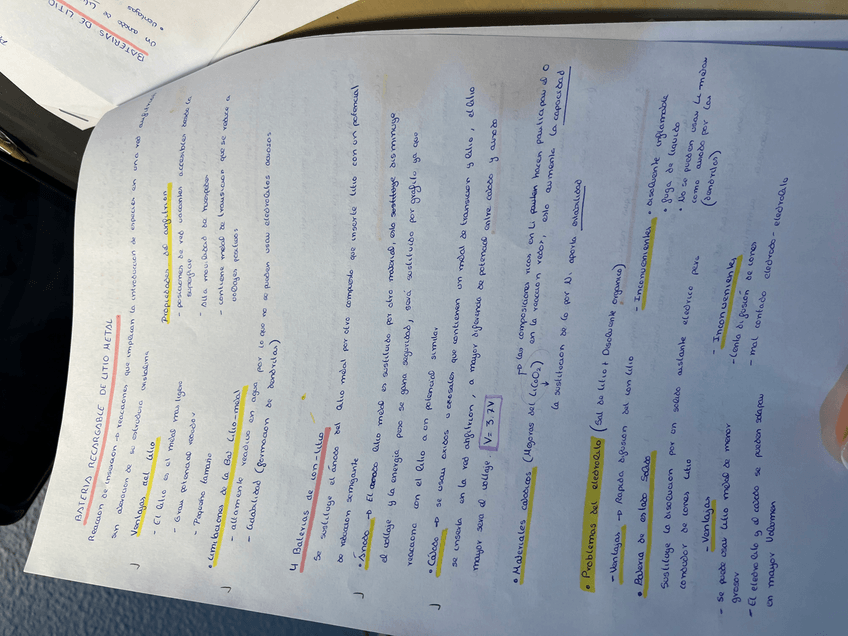 BATERIAS DE LITIO
un ánodo de Litio
• Ventajas
BATERIA RECARGABLE DE LITIO METAL
Reacción de inserción → reacciones que implican la introducción de especies en una red anfitriona
sin alteración de su estructura cristalina
Ventajas del Litio
- El Litio es el metal mas ligero
- Gran potencial reductor
- Pequeño tamaño
Propiedades de anfitrión
- posiciones de red vacantes accesibles desde la
superficie
- Alta movilidad de huésped
- contiene metal de transición que se reduce a
voltajes positivos
• Limitaciones de la Bat Litio-metal
- altamente reactivo en agua por lo que no se pueden usar electrolitos acuosos
- Ciclabilidad (formación de dendritas)
4 Baterias de ion-Litio
Se sustituye el ánodo del Litio metal por otro compuesto que inserte Litio con un potencial
de reducción semejante
• Ánodo → El Litio metal es sustituido por otro material, esto disminuye
el voltaje y la energía pero se gana seguridad, será sustituido por grafito ya que
reacciona con el Litio a un potencial similar.
• Cátodo → se usan óxidos u oxosales que contienen un metal de transición y Litio, el Litio
se inserta en la red anfitrion, a mayor diferencia de potencial entre cátodo y ánodo
mayor será el voltaje V= 3.7V
• Materiales catódicos (Mejoras del LiCoO2) → las composiciones ricas en Li hacen participar al O
en la reacción redox, esto aumenta la capacidad
↓
la sustitución de Co por Ni aporta estabilidad
• Problemas del electrolito (Sal de Litio, Disolvente organico)
- Ventajas → Rapida difusión del ion Litio
- Inconvenientes
• Disolvente inflamable
• fuga de líquido
• No se pueden usar Li metal
como ánodo por las
(dendritas)
• Bateria de estado Solido
Sustituye la disolución por un solido aislante electrico pero
conductor de iones Litio
- Ventajas
- Se puede usar Litio metal de menor
grosor
- El electrolito y el cátodo se pueden solapar
en mayor Volumen
- Inconvenientes
- Lenta difusión de iones
- mal contacto electrodo - electrolito